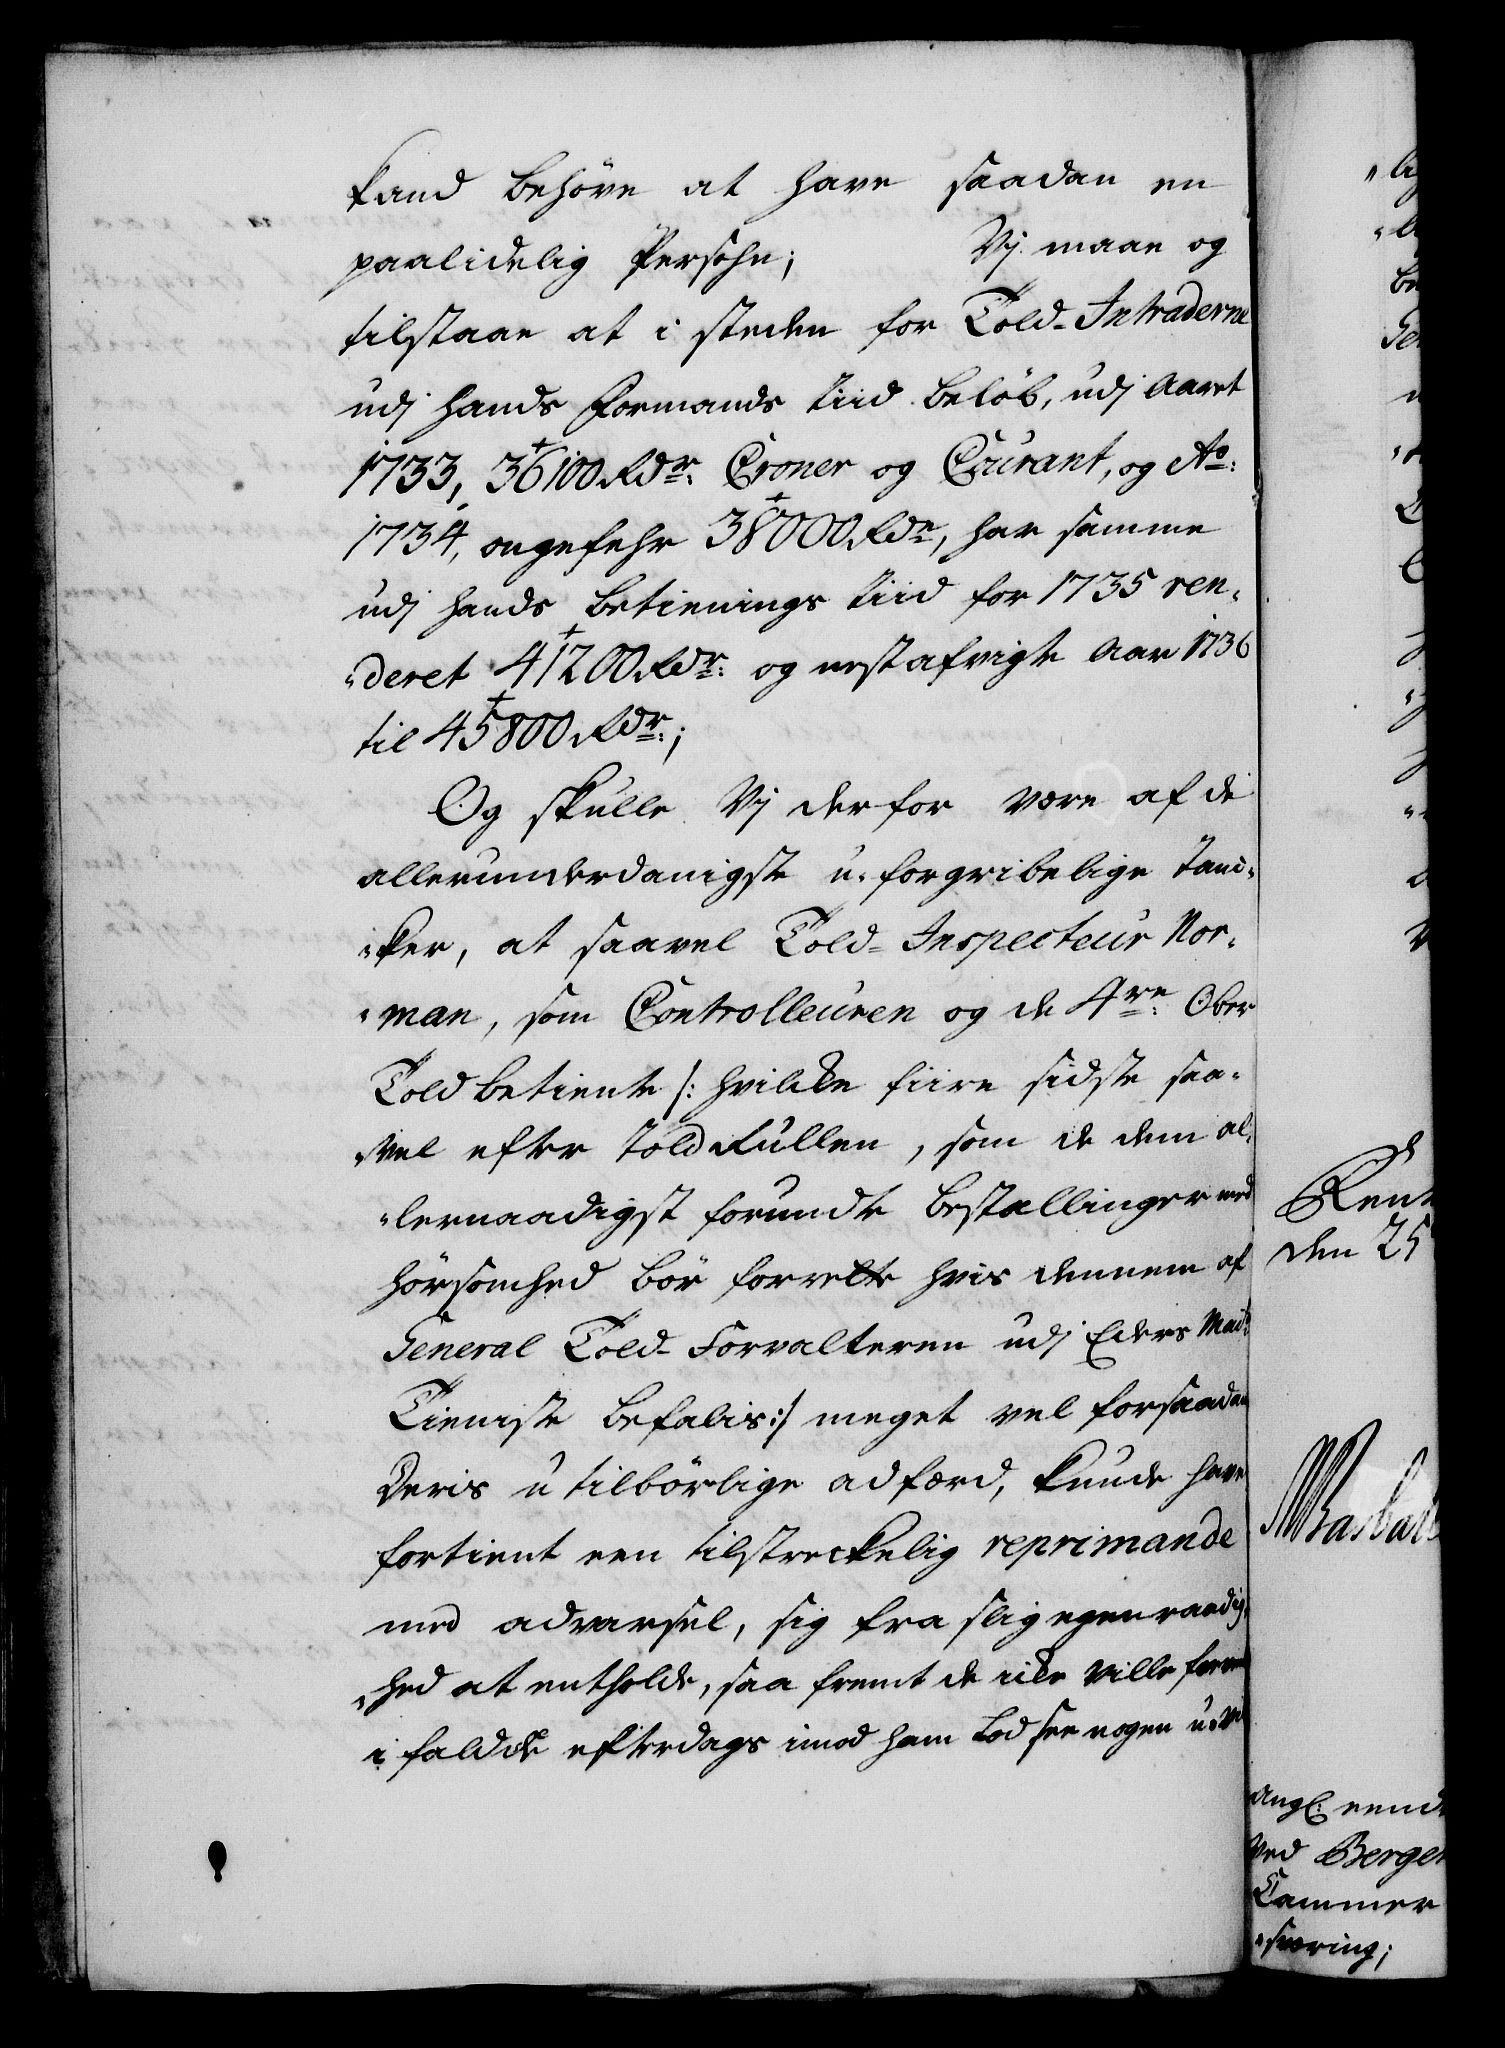 kand behöve at have saadan en
paalidelig Persohn; Vj maae og
tilstaae at i steden for Told-Intraderne
udj hands Formands tiid beløb, udj Aaret
1733, 36100 Rdr: Croner og Courant, og Ao:
1734, ongefehr 38000 Rdr, har samme
udj hands betienings tiid for 1735 ren-
deret 41200 Rdr: og nestafvigte Aar 1736
til 45800 Rdr:;
Og skulle Vj derfor være af de
allerunderdanigste u-forgribelige Tan-
ker, at saavel Told-Inspecteur Nor-
man, som Controlleuren og de 4re: Ober
Toldbetiente /: hvilcke fiire sidste saa-
vel efter Told Rullen, som de dem al-
lernaadigst forundte bestallinger med
hörsomhed bör forrette hvis dennem af
General Told-Forvalteren udj Eders Mai:
Tieniste befalis :/ meget vel for saadan
Deris utilbörlige adfærd, kunde have
fortient een tilstreckelig reprimande
med advarsel, sig fra slig egenraadig-
hed at entholde, saa fremt de icke ville
i fald de efterdags imod ham lod see nogen u-
Rent
den 25
ved Bergen
Cammer